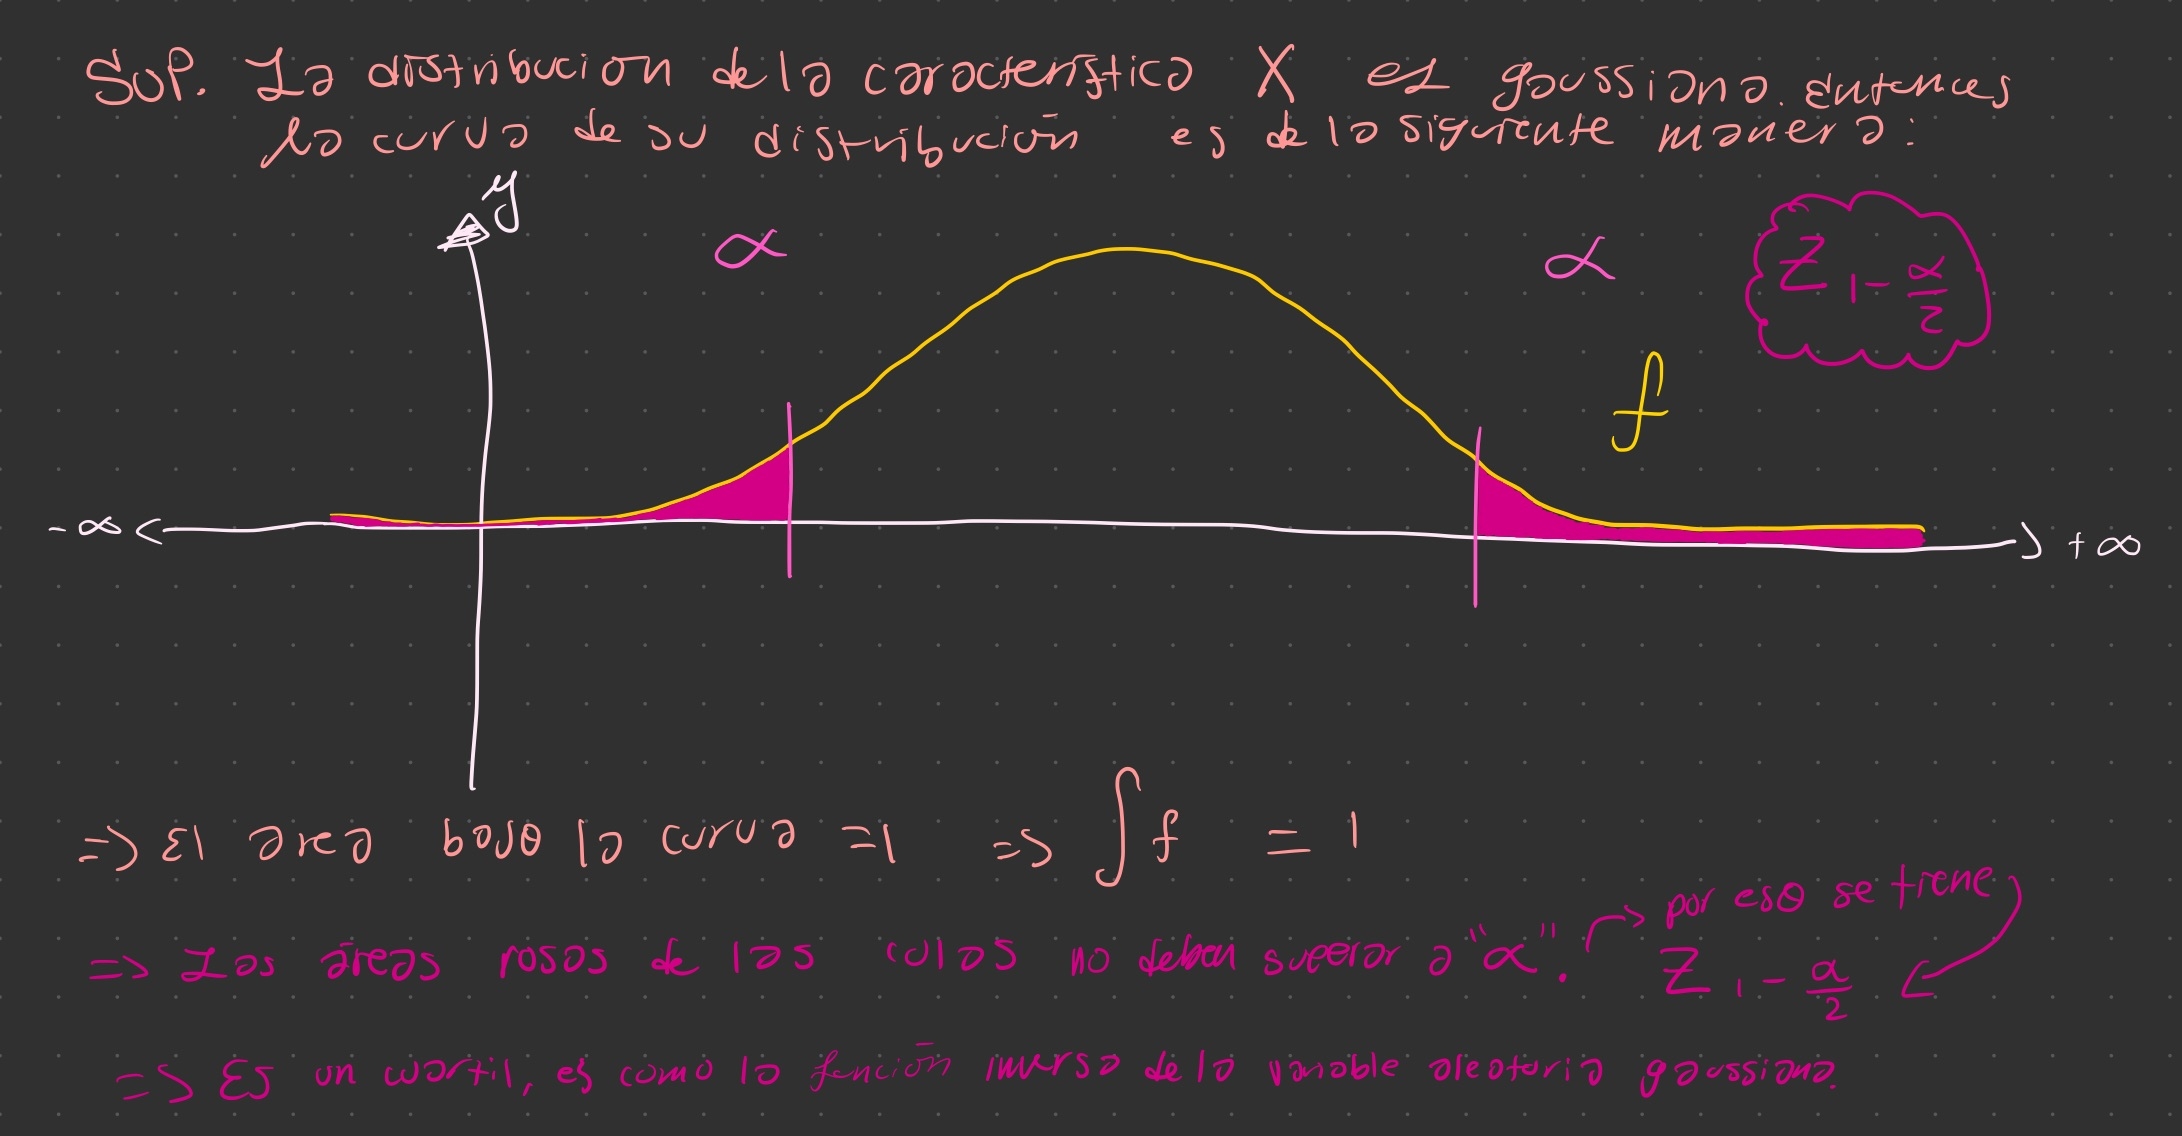 Sup. La distribución de la característica X es gaussiana. Entonces
la curva de su distribución es de la siguiente manera:
y
α
α
Z 1 - α/2
f
- ∞
+ ∞
=> El area bajo la curva = 1 => ∫ f = 1
por eso se tiene
=> Las áreas rosas de las colas no deben superar a "α".
Z 1 - α/2
=> Es un cuartil, es como la función inversa de la variable aleatoria gaussiana.